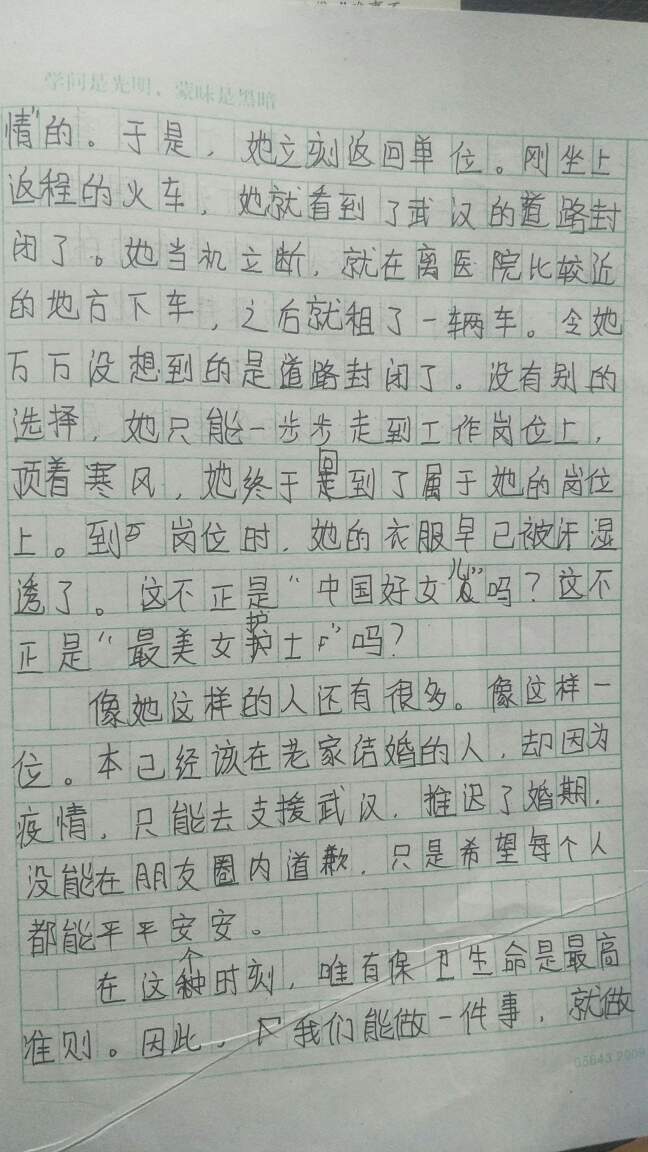 学问是光明，蒙昧是黑暗
情"的。于是，她立刻返回单位。刚坐上
返程的火车，她就看到了武汉的道路封
闭了。她当机立断，就在离医院比较近
的地方下车，之后就租了一辆车。令她
万万没想到的是道路封闭了。没有别的
选择，她只能一步步走到工作岗位上，
顶着寒风，她终于回到了属于她的岗位
上。到岗位时，她的衣服早已被汗湿
透了。这不正是"中国好女儿"吗？这不
正是"最美女护士"吗？
像她这样的人还有很多。像这样一
位。本已经该在老家结婚的人，却因为
疫情，只能去支援武汉，推迟了婚期，
没能在朋友圈内道歉，只是希望每个人
都能平平安安。
在这个时刻，唯有保卫生命是最高
准则。因此，我们能做一件事，就做
05843 2009